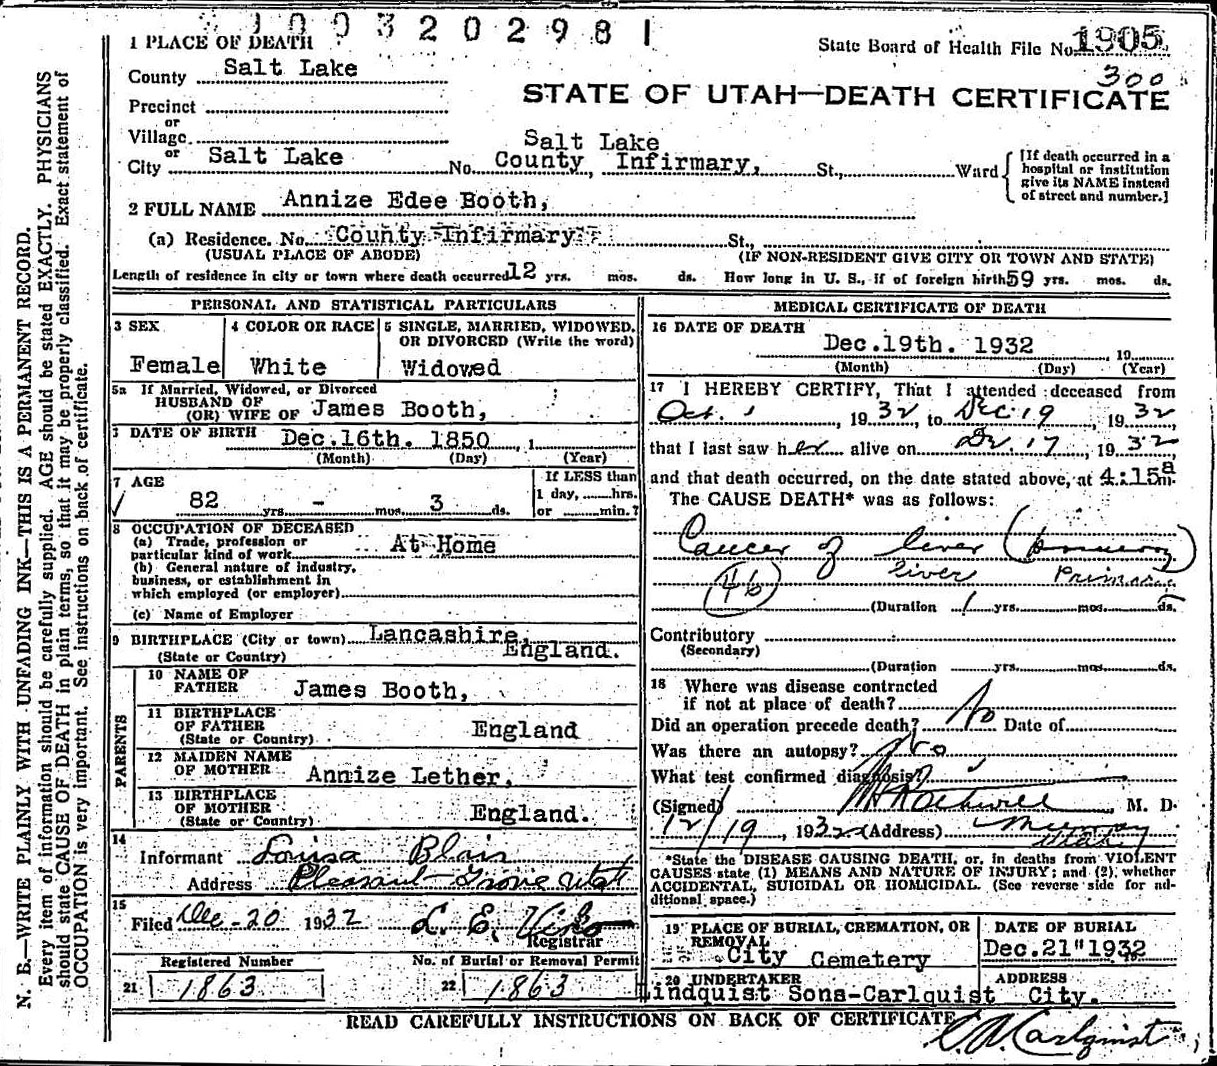 1003202981
State Board of Health File No. 1905
300
STATE OF UTAH—DEATH CERTIFICATE
1 PLACE OF DEATH
County Salt Lake
Precinct
or
Village
or
City Salt Lake No. Salt Lake County Infirmary, St., Ward
[If death occurred in a hospital or institution give its NAME instead of street and number.]
2 FULL NAME Annize Edee Booth,
(a) Residence. No. County Infirmary St.,
(USUAL PLACE OF ABODE) (IF NON-RESIDENT GIVE CITY OR TOWN AND STATE)
Length of residence in city or town where death occurred 12 yrs. mos. ds. How long in U. S., if of foreign birth 59 yrs. mos. ds.
PERSONAL AND STATISTICAL PARTICULARS
3 SEX
Female
4 COLOR OR RACE
White
5 SINGLE, MARRIED, WIDOWED, OR DIVORCED (Write the word)
Widowed
5a If Married, Widowed, or Divorced
HUSBAND OF
(OR) WIFE OF James Booth,
DATE OF BIRTH Dec.16th. 1850 , 1
(Month) (Day) (Year)
7 AGE
82 yrs. – mos. 3 ds.
If LESS than
1 day, hrs.
or min.?
8 OCCUPATION OF DECEASED
(a) Trade, profession or
particular kind of work At Home
(b) General nature of industry,
business, or establishment in
which employed (or employer)
(c) Name of Employer
9 BIRTHPLACE (City or town) Lancashire,
(State or Country) England.
PARENTS
10 NAME OF
FATHER James Booth,
11 BIRTHPLACE
OF FATHER England
(State or Country)
12 MAIDEN NAME
OF MOTHER Annize Lether,
13 BIRTHPLACE
OF MOTHER England.
(State or Country)
14
Informant Louisa Blair
Address Pleasant Grove Utah
15
Filed Dec-20 1932 L. E.
Registrar
Registered Number No. of Burial or Removal Permit
21 1863 22 1863
MEDICAL CERTIFICATE OF DEATH
16 DATE OF DEATH
Dec.19th. 1932 , 19
(Month) (Day) (Year)
17 I HEREBY CERTIFY, That I attended deceased from
Oct. 1 , 1932, to Dec 19 , 1932
that I last saw her alive on Dec. 17, 1932
and that death occurred, on the date stated above, at 4:15 a m.
The CAUSE DEATH* was as follows:
Cancer of liver
(46) liver Primary
(Duration 1 yrs. mos. ds.
Contributory
(Secondary)
(Duration yrs. mos. ds.
18 Where was disease contracted
if not at place of death?
Did an operation precede death? No Date of
Was there an autopsy? No
What test confirmed diagnosis?
(Signed) Rothwell , M. D.
12/19, 1932 (Address) Murray
Utah
*State the DISEASE CAUSING DEATH, or, in deaths from VIOLENT
CAUSES state (1) MEANS AND NATURE OF INJURY; and (2), whether
ACCIDENTAL, SUICIDAL OR HOMICIDAL. (See reverse side for ad-
ditional space.)
19 PLACE OF BURIAL, CREMATION, OR
REMOVAL
City Cemetery
DATE OF BURIAL
Dec.21" 1932
20 UNDERTAKER
Lindquist Sons-Carlquist
ADDRESS
City.
READ CAREFULLY INSTRUCTIONS ON BACK OF CERTIFICATE
C. A. Carlquist
N. B.—WRITE PLAINLY WITH UNFADING INK—THIS IS A PERMANENT RECORD.
Every item of information should be carefully supplied. AGE should be stated EXACTLY. PHYSICIANS
should state CAUSE OF DEATH in plain terms, so that it may be properly classified. Exact statement of
OCCUPATION is very important. See instructions on back of certificate.